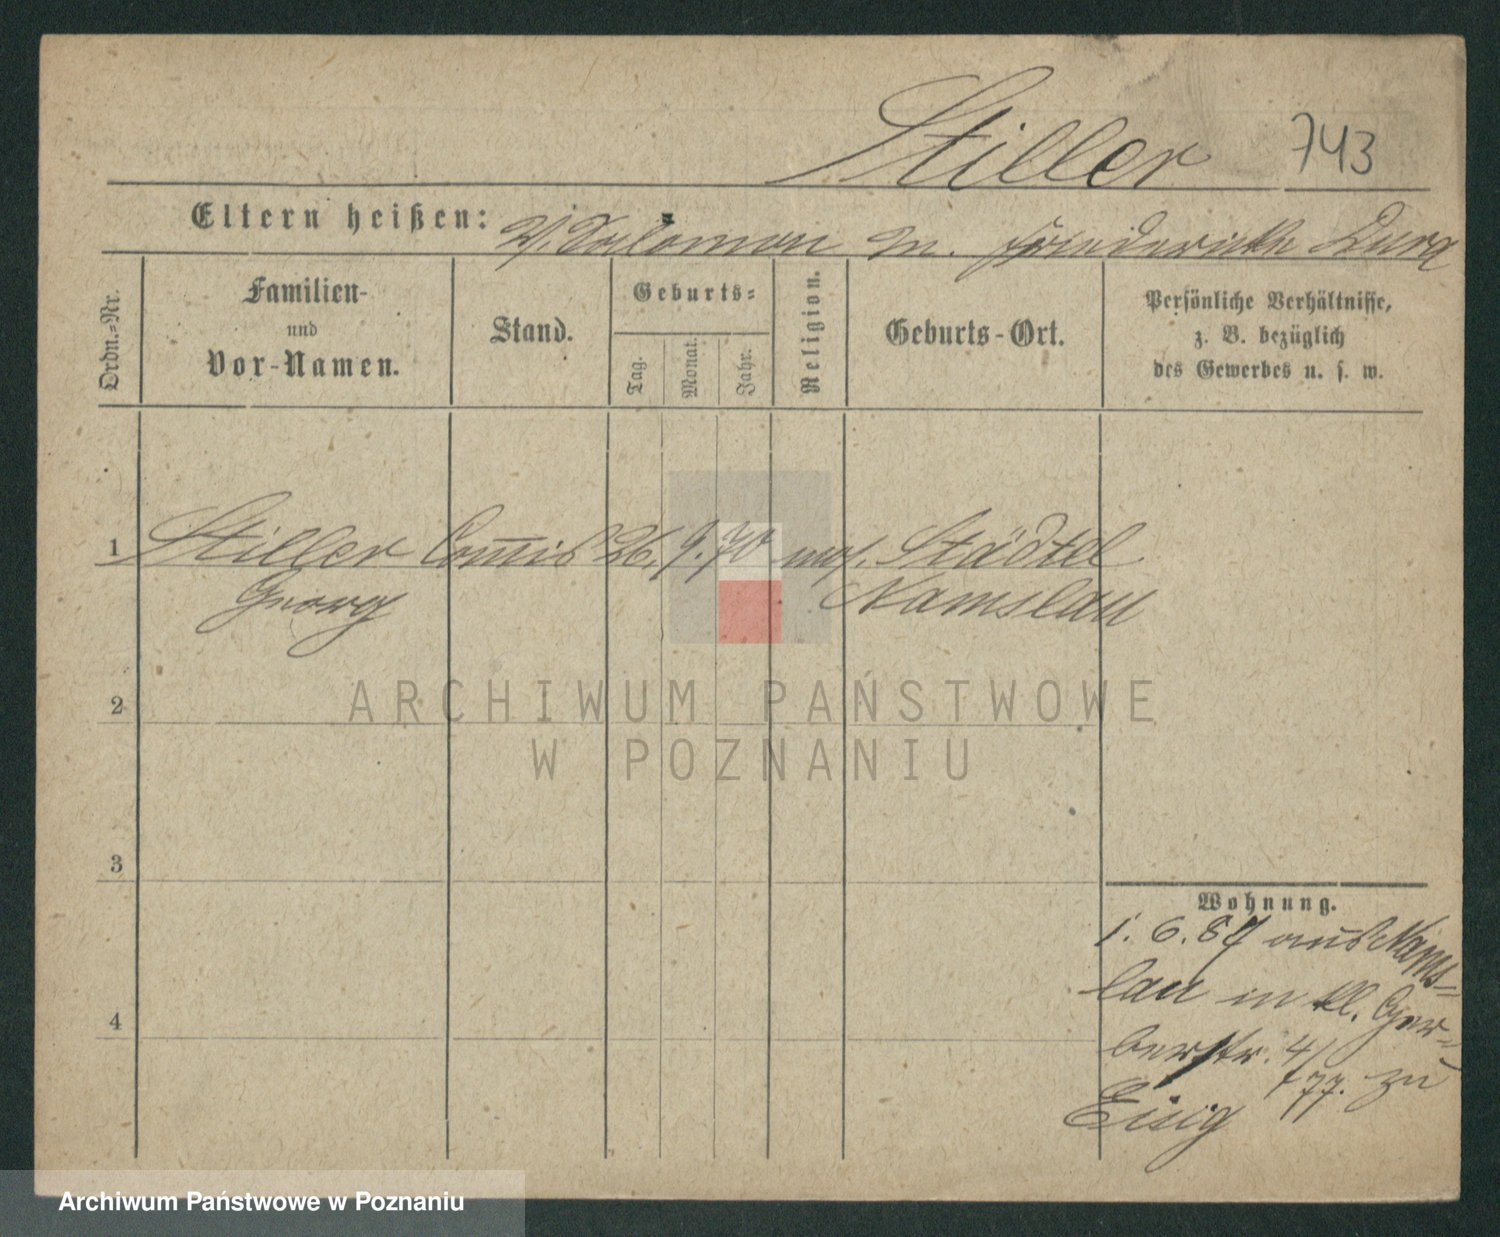 Stiller 743
Eltern heißen: V. Salomon M. Friedericke
Ordn.=Nr.
Familien-
und
Vor-Namen.
Stand.
Geburts=
Tag.
Monat.
Jahr.
Religion.
Geburts-Ort.
Persönliche Verhältnisse,
z. B. bezüglich
des Gewerbes u. s. w.
1 Stiller Com̄is 26. 9. 70 mos. Städtel
Georg Namslau
2
ARCHIWUM PAŃSTWOWE
W POZNANIU
3
Wohnung.
1. 6. 87 aus Nams=
lau in kl. Ger=
berstr. 4/
177. zu
4
Archiwum Państwowe w Poznaniu